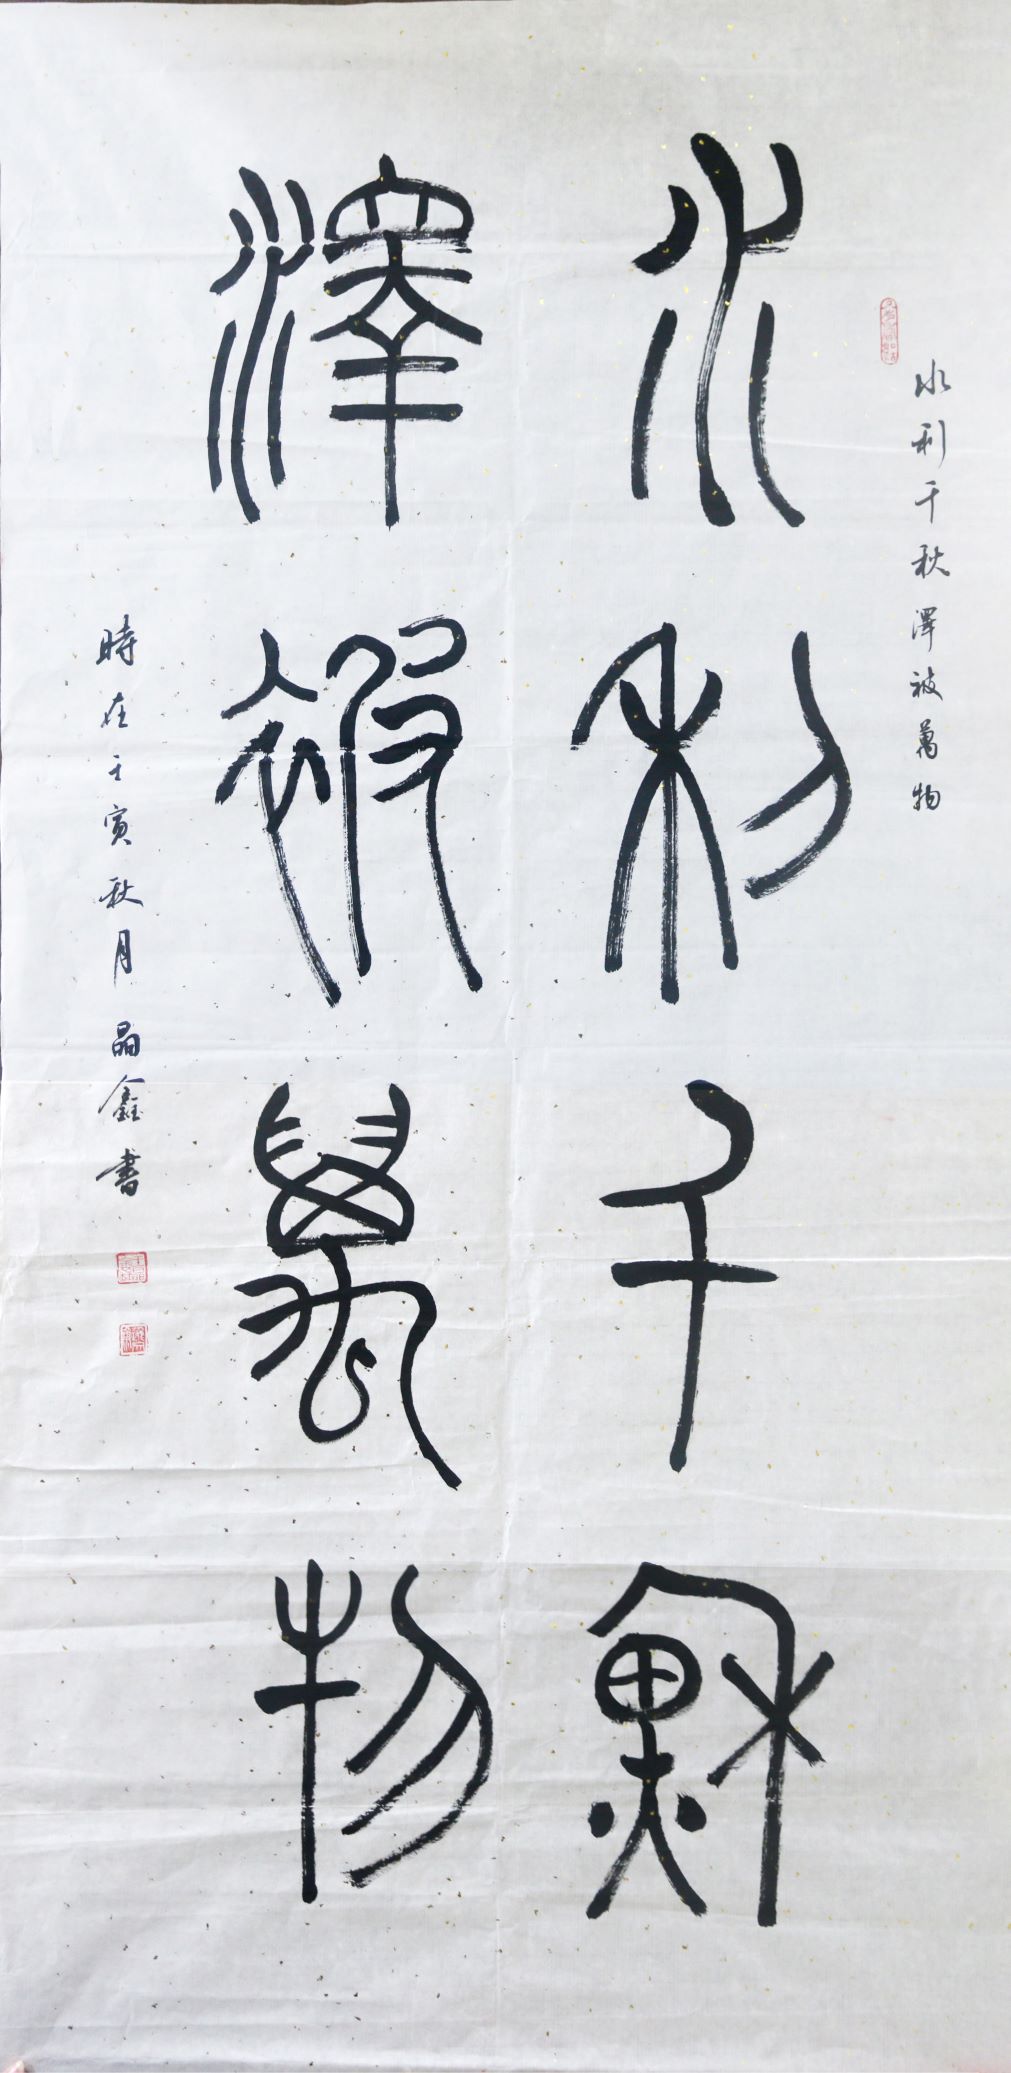 水利千秋澤被萬物
水利千秋
澤被萬物
時在壬寅秋月晶鑫書